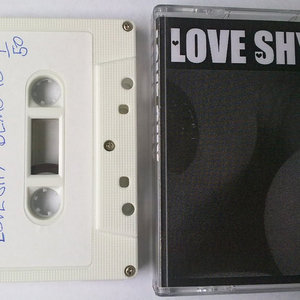 LOVE SHY DEMO 1/50
LOVE SHY